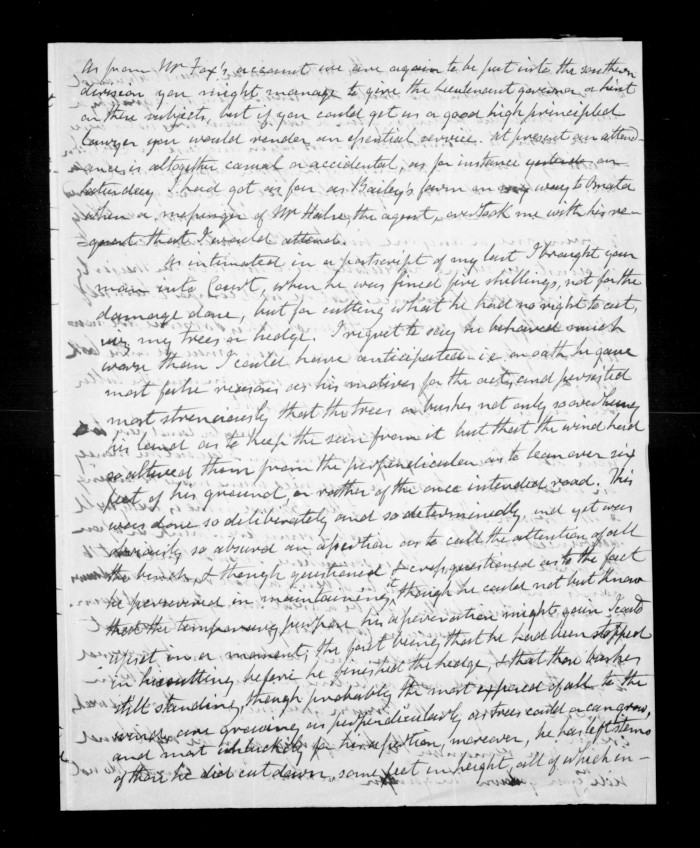 As from Mr Fox's account we are again to be put into the southern
division you might manage to give the Lieutenant governor a hint
on these subjects, but if you could get us a good high principled
Lawyer you would render an essential service. At present an attend-
ance is altogether casual or accidental, as for instance yesterda on
Saturday I had got as far as Bailey's farm on my way to Omata
when a messenger of Mr Halse the agent, overtook me with his re-
quest that I would attend.
As intimated in a postscript of my last I brought your
man into Court, when he was fined five shillings, not for the
damage done, but for cutting what he had no right to cut,
viz, my trees or hedge. I regret to say he behaved much
worse than I could have anticipated i.e. on oath he gave
most false reasons as his motives for the act, and persisted
most strenuously that the trees or bushes not only so overhung
his land as to keep the sun from it but that the wind had
so altered them from the perpendicular as to lean over six
feet of his ground, or rather of the once intended road. This
was done so deliberately and so determinedly, and yet was
obviously so absurd an assertion as to call the attention of all
the bench, & though questioned & crossquestioned as to the fact
he persevered in maintaining it, though he could not but know
that the temporary purpose his asseveration might gain I could
upset in a moment, the fact being, that he had been stopped
in his cutting before he finished the hedge, & that those bushes
still standing, though probably the most exposed of all to the
wind, are growing as perpendicularly as trees could or can grow,
and most unluckily for his assertion, moreover, he has left stems
of those he did cut down, some feet in height, all of which in-